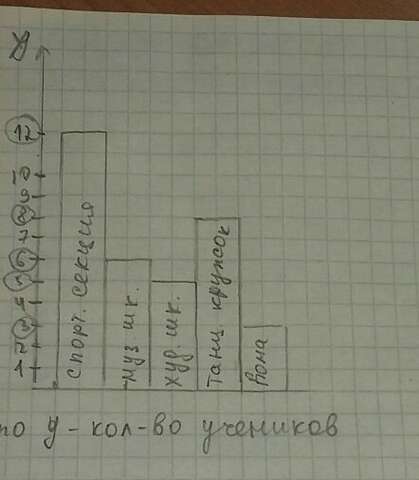 У
12
10
9
8
7
6
5
4
3
2
1
спорт. секция
муз шк.
худ. шк.
танц кружок
дома
по у - кол-во учеников